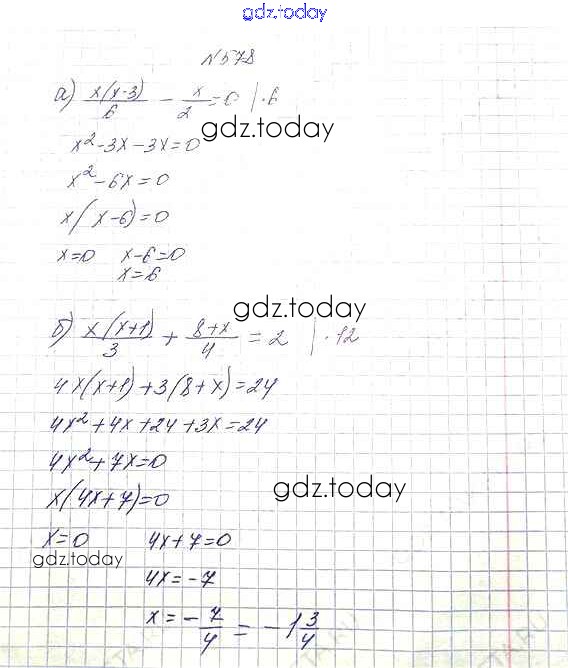 gdz.today
№578
а) x(x-3)/6 - x/2 = 0 | ·6
gdz.today
x²-3x-3x=0
x²-6x=0
x(x-6)=0
x=0 x-6=0
x=6
gdz.today
б) x(x+1)/3 + 8+x/4 = 2 | ·12
4x(x+1)+3(8+x)=24
4x²+4x+24+3x=24
4x²+7x=0
gdz.today
x(4x+7)=0
x=0 4x+7=0
gdz.today
4x=-7
x=-7/4 = -1 3/4